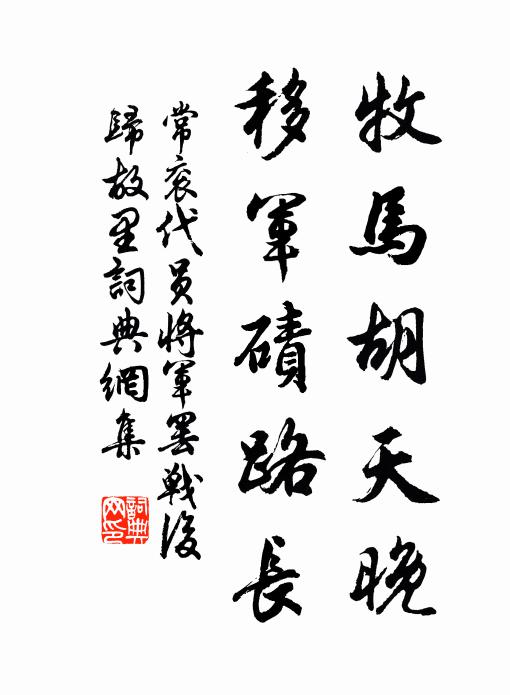 牧馬胡天晚
移軍磧路長
常袞代員將軍罢戰後
歸故里詞典網集
詞典
网印